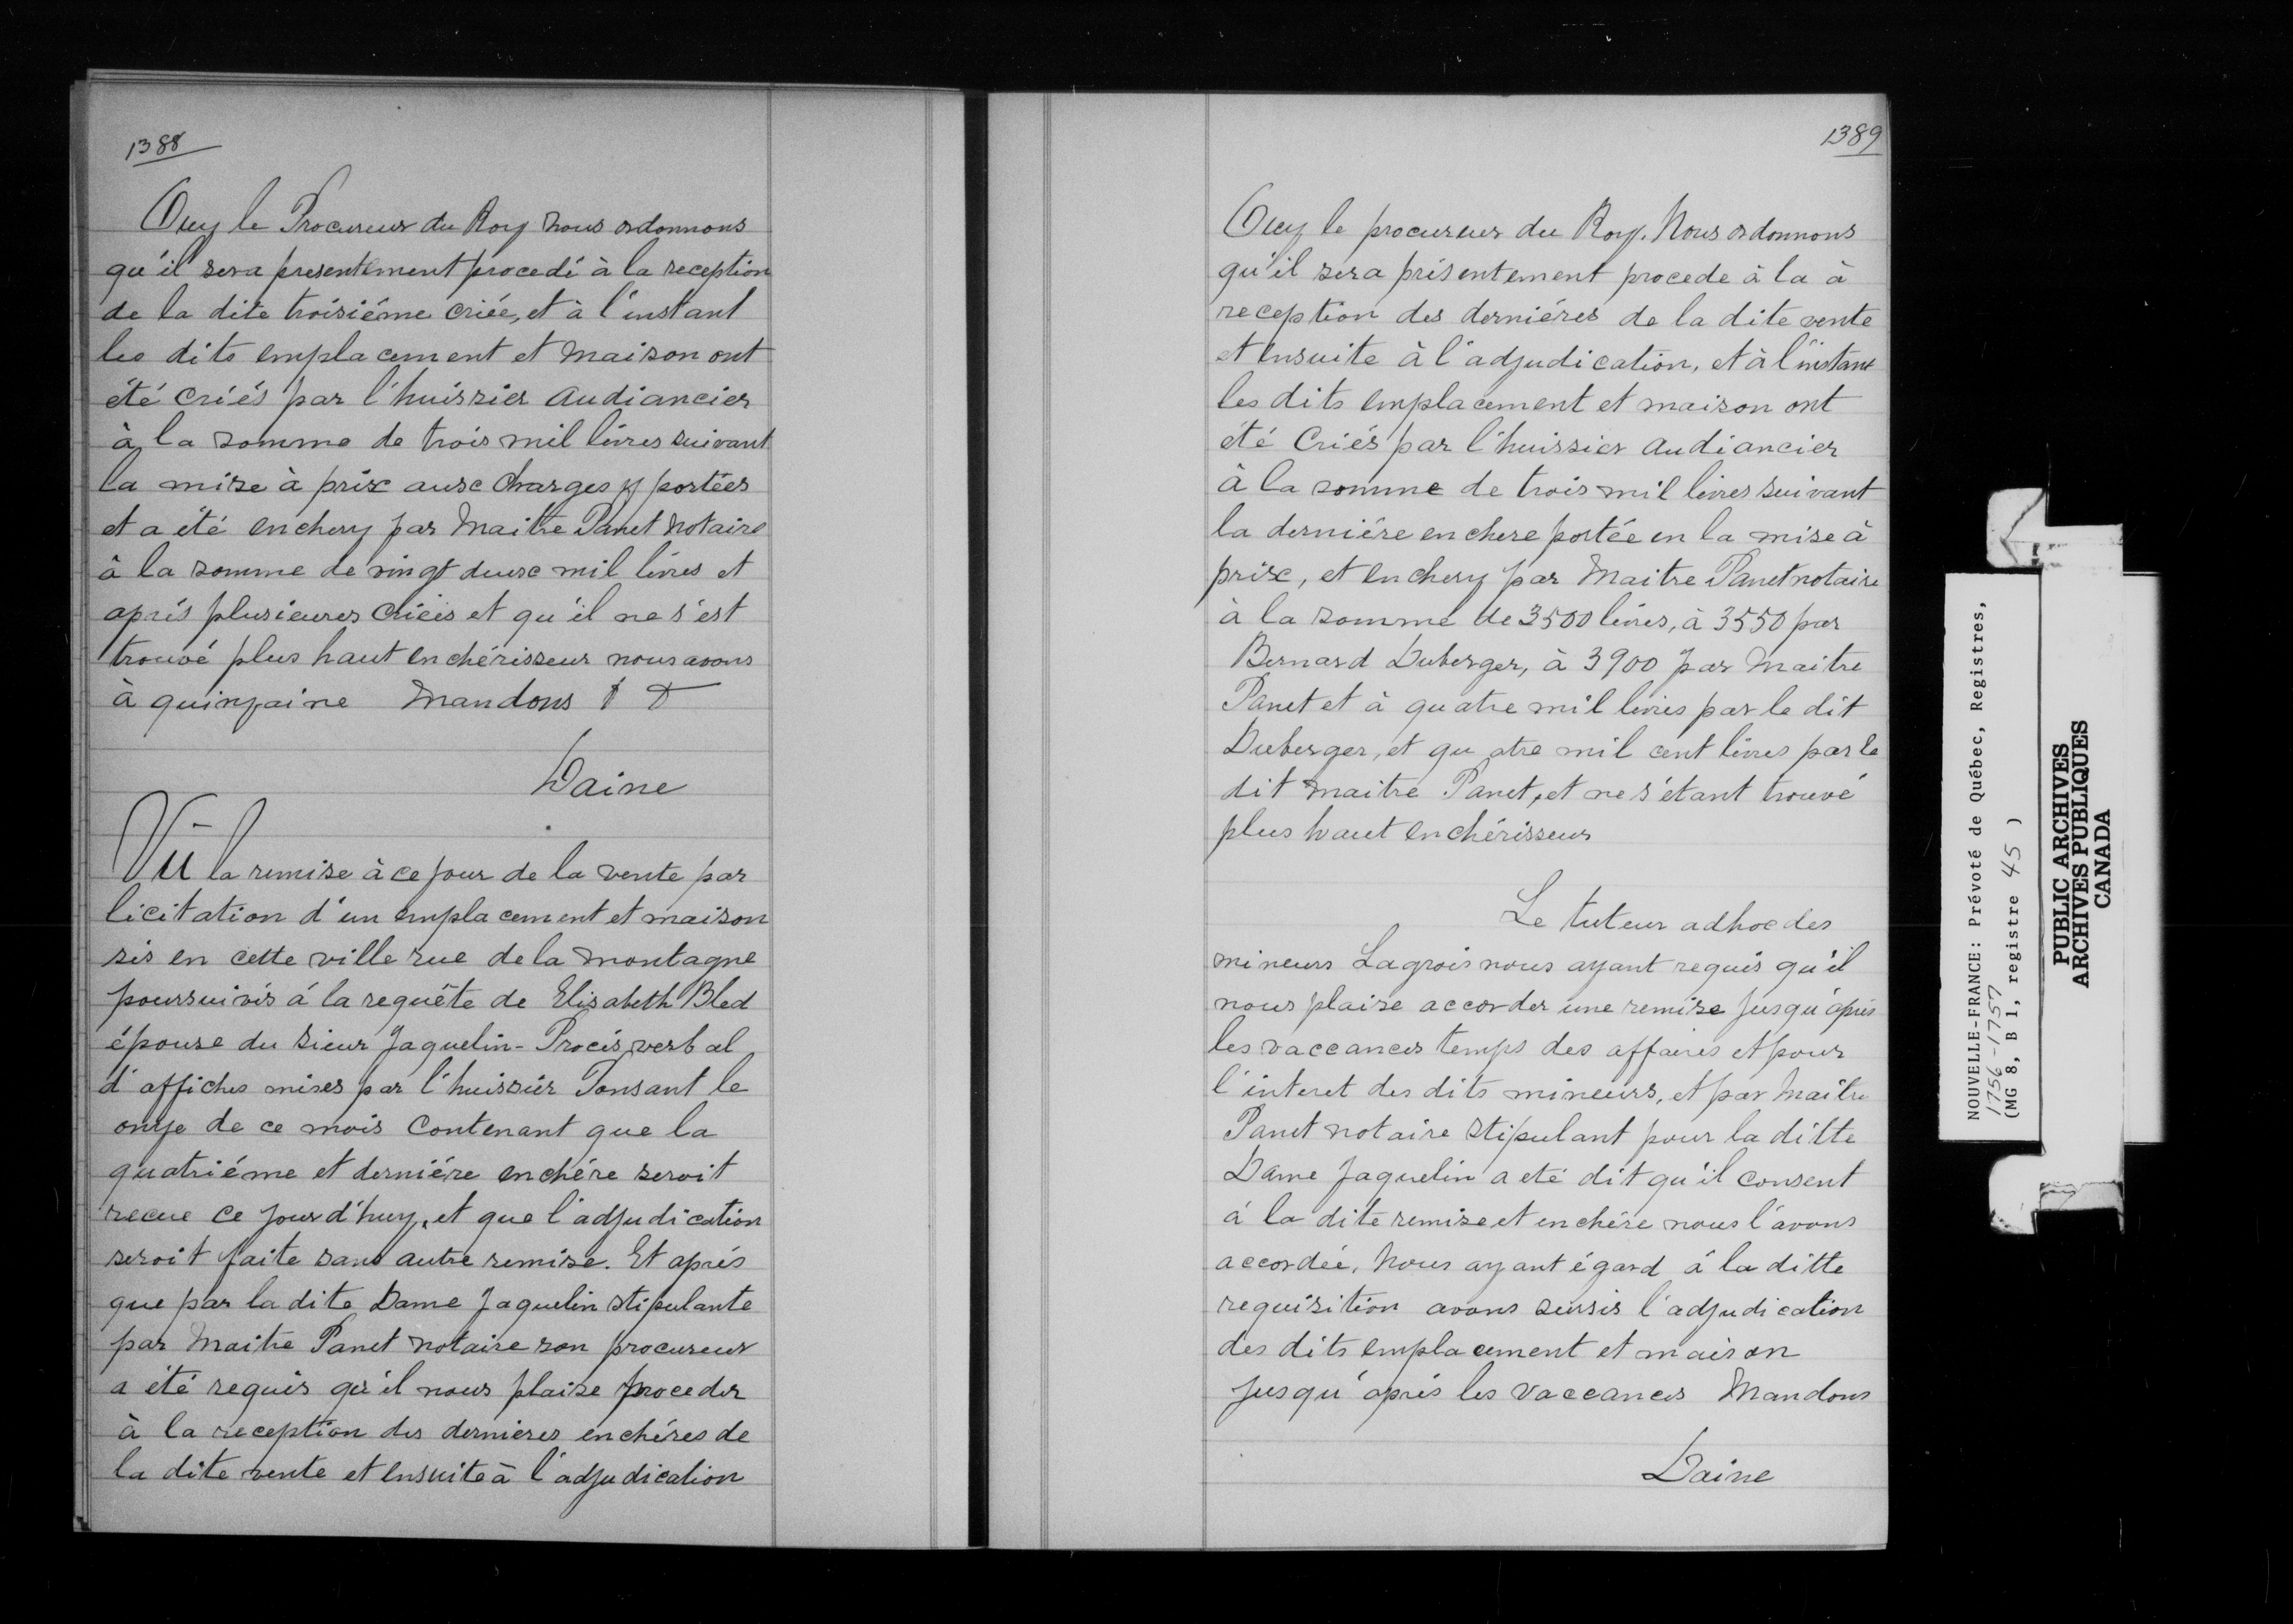 1388
Ouy le Procureur du Roy nous ordonnons
qu'il sera presentement procedé à la reception
de la dite troisiéme criée, et à l'instant
les dits emplacement et maison ont
été criés par l'huissier audiancier
à la somme de trois mil livres suivant
la mise à prix aux charges y portées
et a été enchery par Maitre Panet notaire
à la somme de vingt deux mil livres et
aprés plusieures criées et qu'il ne s'est
trouvé plus haut enchérisseur nous avons
à quinzaine Mandons
Daine
Vû la remise à ce jour de la vente par
licitation d'un emplacement et maison
sis en cette ville rue de la montagne
poursuivis á la requête de Elisabeth Bled
épouse du sieur Jaquelin - Procés verbal
d'affiches mises par l'huissier Ponsant le
onze de ce mois contenant que la
quatriéme et derniére enchére seroit
recue ce jourd'huy, et que l'adjudication
seroit faite sans autre remise. Et aprés
que par la dite Dame Jaquelin stipulante
par Maitre Panet notaire son procureur
a été requis qu'il nous plaise proceder
à la reception des dernieres enchéres de
la dite vente et ensuite à l'adjudication
1389
Ouy le procureur du Roy. Nous ordonnons
qu'il sera présentement procede à la à
reception des derniéres de la dite vente
et ensuite à l'adjudication, et à l'instant
les dits emplacement et maison ont
été criés par l'huissier audiancier
à la somme de trois mil livres suivant
la derniére enchere portée en la mise à
prix, et enchery par Maitre Panet notaire
à la somme de 3500 livres, à 3550 par
Bernard Duberger, à 3900 par Maitre
Panet et à quatre mil livres par le dit
Duberger, et quatre mil cent livres par le
dit maitre Panet, et ne s'étant trouvé
plus haut enchérisseur
Le tuteur adhoc des
mineurs Lagrois nous ayant requis qu'il
nous plaise accorder une remise jusqu'aprés
les vaccances temps des affaires et pour
l'interet des dits mineurs, et par Maitre
Panet notaire stipulant pour la ditte
Dame Jaquelin a eté dit qu'il consent
á la dite remise et enchére nous l'avons
accordée, Nous ayant égard á la ditte
requisition avons sursis l'adjudication
des dits emplacement et maison
jusqu'aprés les vaccances Mandons
Daine
NOUVELLE-FRANCE: Prévoté de Québec, Registres,
1756-1757
(MG 8, B 1, registre 45 )
PUBLIC ARCHIVES
ARCHIVES PUBLIQUES
CANADA